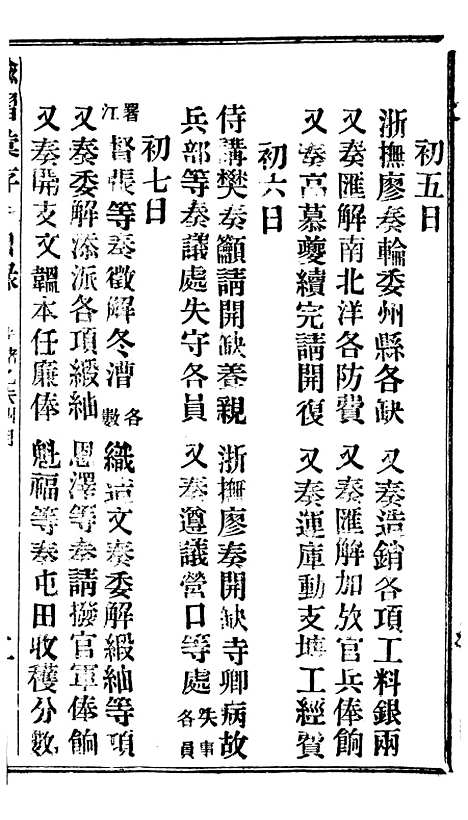 初五日
浙撫廖奏輪委州縣各缺　又奏造銷各項工料銀兩
又奏匯解南北洋各防費　又奏匯解加放官兵俸餉
又奏高慕夔續完請開復　又奏運庫動支塘工經費
初六日
侍講樊奏籲請開缺養親　浙撫廖奏開缺寺卿病故
兵部等奏議處失守各員　又奏遵議營口等處失事各員
初七日
署江督張等奏徵解冬漕各數　織造文奏委解緞紬等項
又奏委解添派各項緞紬　恩澤等奏請撥官軍俸餉
又奏開支文韞本任廉俸　魁福等奏屯田收穫分數
諭摺彙存 目錄